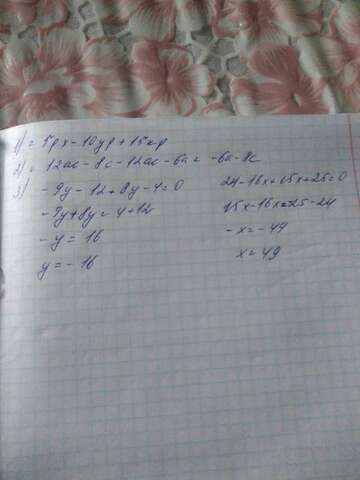 1) = 5px - 10yp + 15zp
2) = 12ac - 8c - 12ac - 6a = -6a - 8c
3) -9y - 12 + 8y - 4 = 0
-9y + 8y = 4 + 12
-y = 16
y = -16
24 - 16x + 15x + 25 = 0
15x - 16x = -25 - 24
-x = -49
x = 49